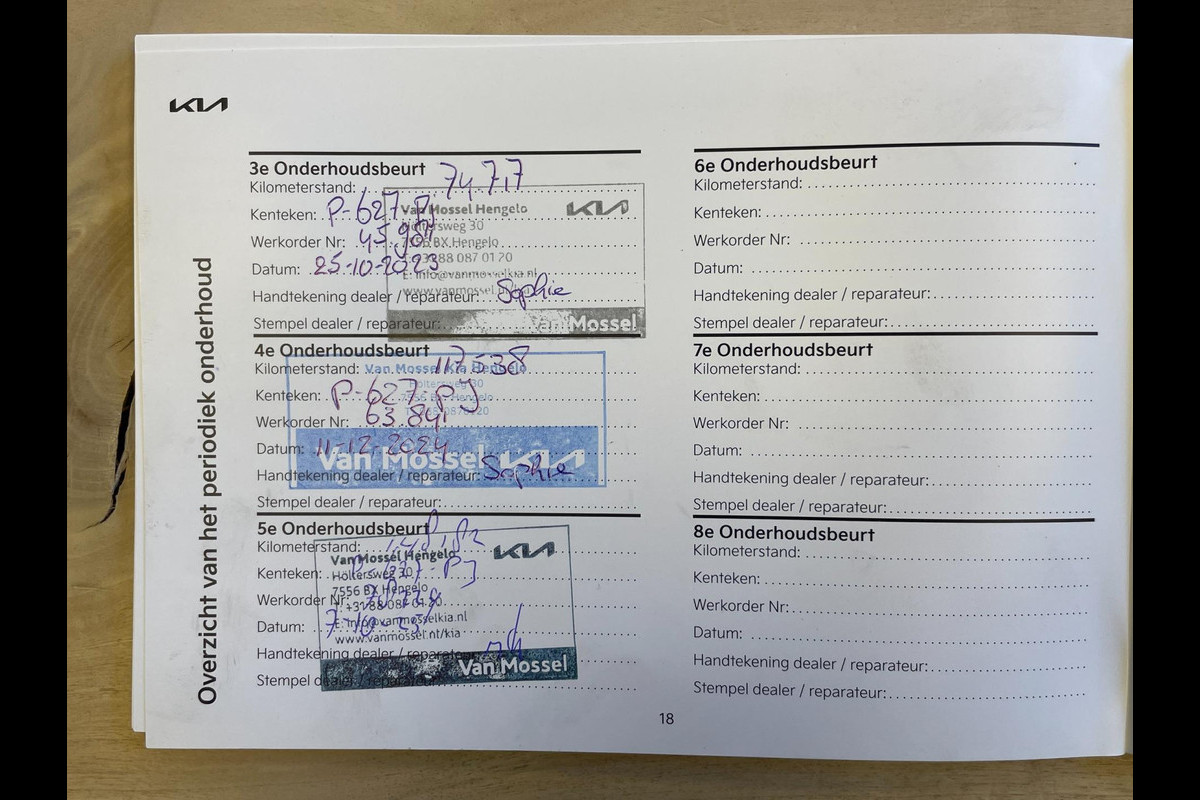 KIA
Overzicht van het periodiek onderhoud
3e Onderhoudsbeurt
Kilometerstand: 74.717
Kenteken: P-627-PJ
Werkorder Nr:
Datum: 25-10-2023
Handtekening dealer / reparateur: Sophie
Stempel dealer / reparateur:
Van Mossel Hengelo KIA
Holtersweg 30
7556 BX Hengelo
T: +31 88 087 01 20
E: info@vanmosselkia.nl
www.vanmossel.nl/kia
Van Mossel
4e Onderhoudsbeurt
Kilometerstand: 117538
Kenteken: P-627-PJ
Werkorder Nr: 63.841
Datum: 11-12-2024
Handtekening dealer / reparateur: Sophie
Stempel dealer / reparateur:
Van Mossel Kia Hengelo
Holtersweg 30
7556 BX Hengelo
Van Mossel KIA
5e Onderhoudsbeurt
Kilometerstand:
Kenteken: P-627-PJ
Werkorder Nr:
Datum: 7-10
Handtekening dealer / reparateur:
Stempel dealer / reparateur:
Van Mossel Hengelo KIA
Holtersweg 30
7556 BX Hengelo
T: +31 88 087 01 20
E: info@vanmosselkia.nl
www.vanmossel.nl/kia
Van Mossel
6e Onderhoudsbeurt
Kilometerstand:
Kenteken:
Werkorder Nr:
Datum:
Handtekening dealer / reparateur:
Stempel dealer / reparateur:
7e Onderhoudsbeurt
Kilometerstand:
Kenteken:
Werkorder Nr:
Datum:
Handtekening dealer / reparateur:
Stempel dealer / reparateur:
8e Onderhoudsbeurt
Kilometerstand:
Kenteken:
Werkorder Nr:
Datum:
Handtekening dealer / reparateur:
Stempel dealer / reparateur:
18